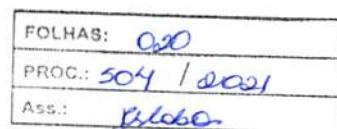 FOLHAS: 020
PROC.: 504 / 2021
Ass.: